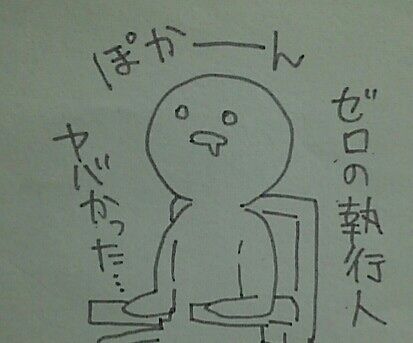 ぽかーーん
ゼロの執行人
ヤバかった…